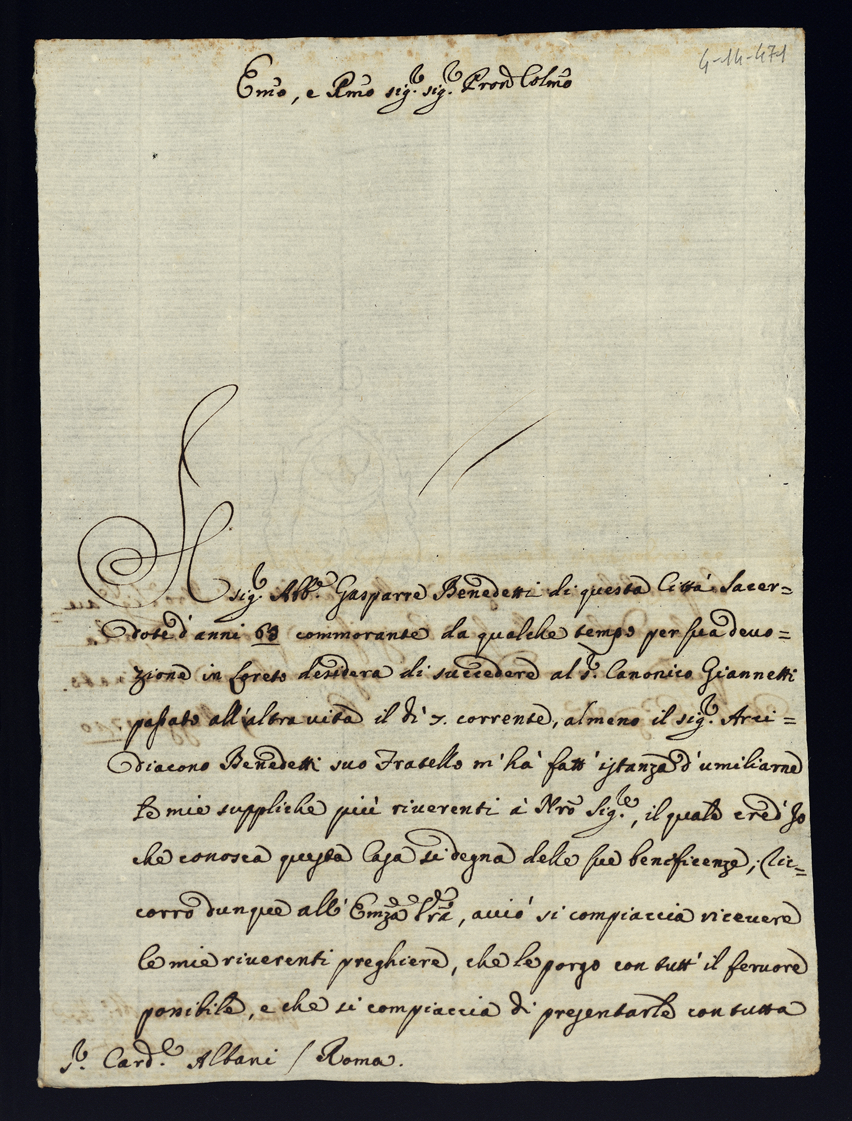 4-14-471
Emo, e Rmo sig.r sig.r Pron Colmo
Il sig.r Abb.e Gasparre Benedetti di questa Città Sacer=
dote d'anni 63 commorante da qualche tempo per sua devo=
zione in Loreto desidera di succedere al S.r Canonico Giannetti
passato all'altra vita il dì 7. corrente, almeno il sig.r Arci=
diacono Benedetti suo Fratello m'hà fatt'istanza d'umiliarne
le mie suppliche più riverenti à Nro Sig.re, il quale cred'Io
che conosca questa Casa sì degna delle sue beneficenze; Ric=
corro dunque all'Emza Vra, acciò si compiaccia ricevere
le mie riverenti preghiere, che le porgo con tutt'il fervore
possibile, e che si compiaccia di presentarle con tutta
S.r Card.le Albani / Roma.